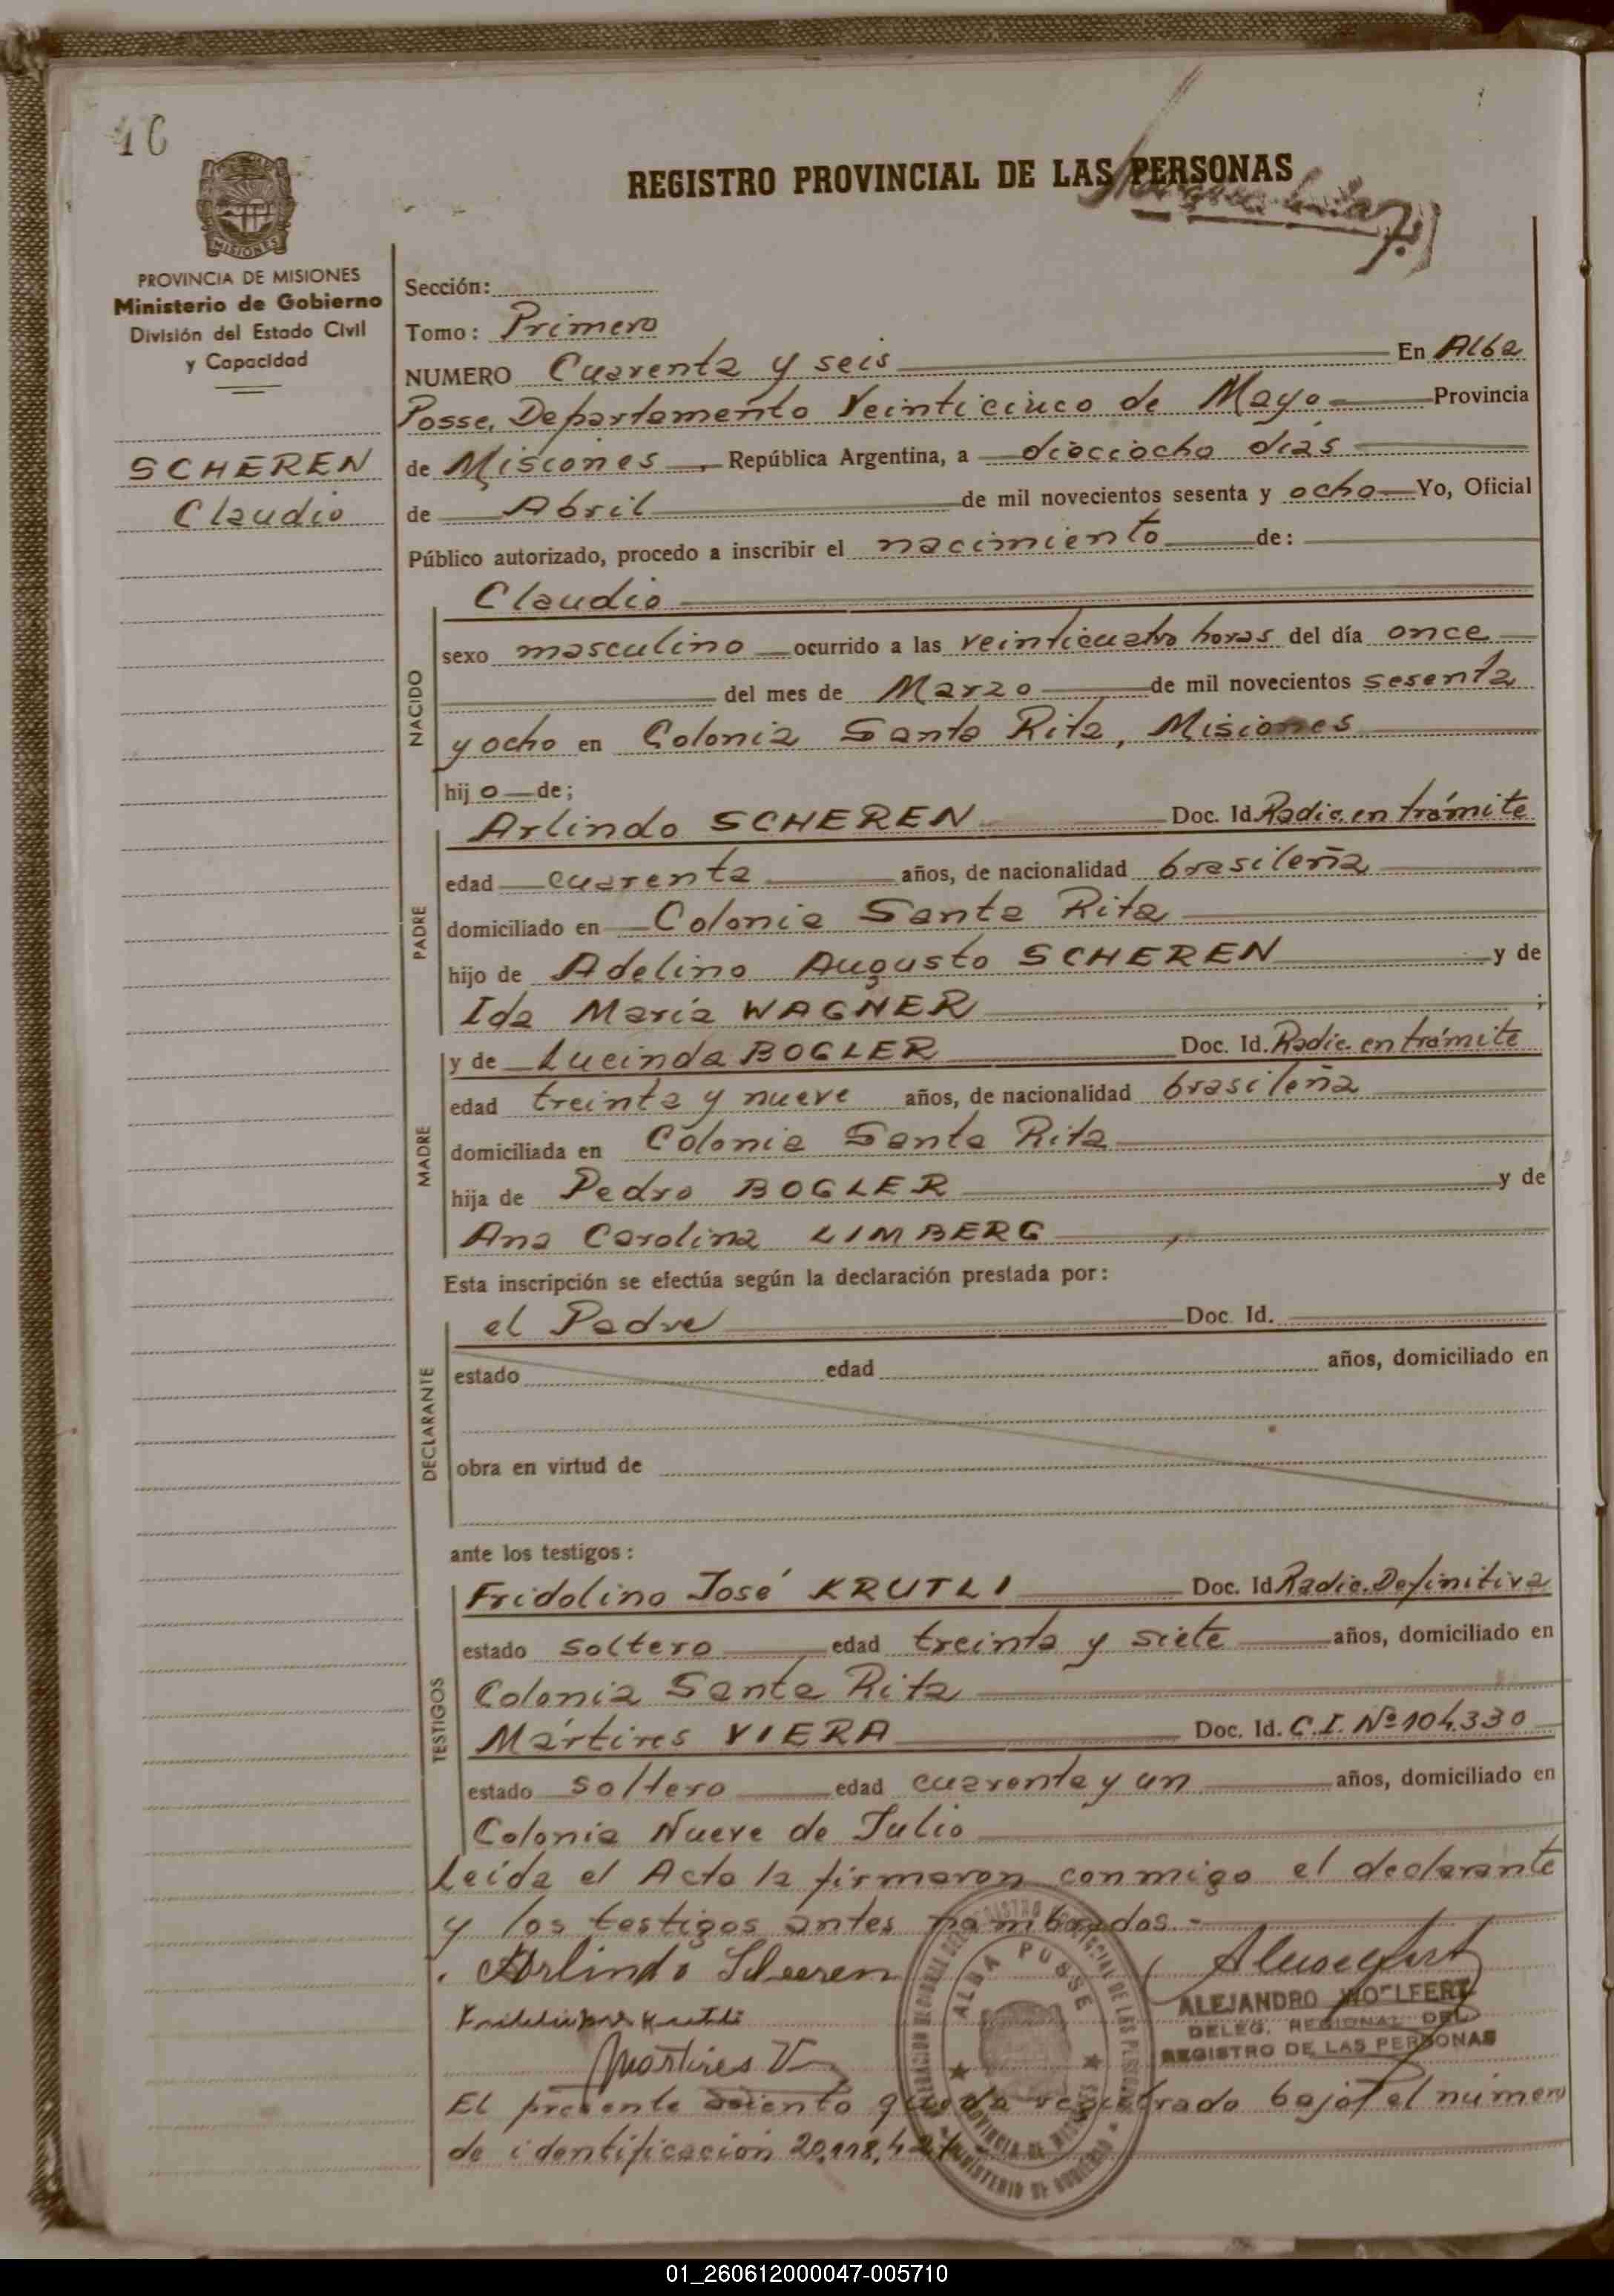 16
REGISTRO PROVINCIAL DE LAS PERSONAS
MISIONES
PROVINCIA DE MISIONES
Ministerio de Gobierno
División del Estado Civil
y Capacidad
SCHEREN
Claudio
Sección:
Tomo: Primero
NUMERO Cuarenta y seis En Alba
Posse, Departamento Veinticinco de Mayo Provincia
de Misiones, República Argentina, a dioeciocho días
de Abril de mil novecientos sesenta y ocho Yo, Oficial
Público autorizado, procedo a inscribir el nacimiento de:
NACIDO
Claudio
sexo masculino ocurrido a las veinticuatro horas del día once
del mes de Marzo de mil novecientos sesenta
y ocho en Colonia Santa Rita, Misiones
hijo de;
PADRE
Arlindo SCHEREN Doc. Id. Radic. en trámite
edad cuarenta años, de nacionalidad brasileña
domiciliado en Colonia Santa Rita
hijo de Adelino Augusto SCHEREN y de
Ida María WAGNER ;
MADRE
y de Lucinda BOGLER Doc. Id. Radic. en trámite
edad treinta y nueve años, de nacionalidad brasileña
domiciliada en Colonia Santa Rita
hija de Pedro BOGLER y de
Ana Carolina LIMBERG ,
Esta inscripción se efectúa según la declaración prestada por:
DECLARANTE
el Padre Doc. Id.
estado edad años, domiciliado en
obra en virtud de
ante los testigos:
TESTIGOS
Fridolino José KRUTLI Doc. Id. Radic. Definitiva
estado soltero edad treinta y siete años, domiciliado en
Colonia Santa Rita
Mártires VIERA Doc. Id. C.I. Nº 104.330
estado soltero edad cuarenta y un años, domiciliado en
Colonia Nueve de Julio
Leída el Acta la firmaron conmigo el declarante
y los testigos antes nombrados.-
Arlindo Scheeren
ALBA POSSE
PROVINCIA DE MISIONES
MINISTERIO DE GOBIERNO
ALEJANDRO WOLFERT
DELEG. REGIONAL DEL
REGISTRO DE LAS PERSONAS
Martires V
El presente asiento queda registrado bajo el número
de identificación 20.118.421
01_260612000047-005710